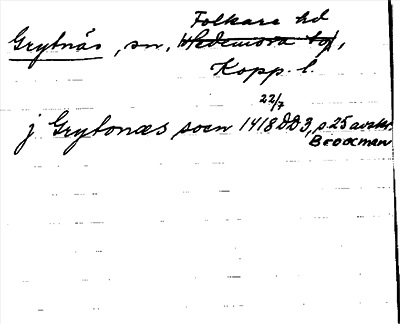 Folkare hd
Grytnäs, sn, Hedemora tg,
Kopp. l.
22/7
j Grytonæs socn 1418 DD3, s. 25 avskr.
Brocman